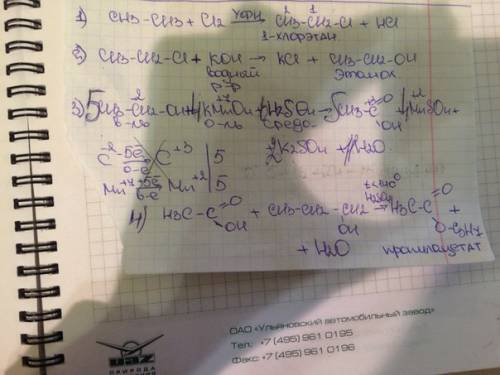 1) CH3-CH3 + Cl2 УФН CH3-CH2-Cl + HCl
1-хлорэтан
2) CH3-CH2-Cl + KOH → KCl + CH3-CH2-OH
водный этанол
р-р
3) 5CH3-CH2-OH + 4KMnO4 + H2SO4 → 5CH3-C=O OH + 4MnSO4 +
в-ль о-ль среда
2K2SO4 + H2O
C -5e C+3 | 5
о-е
Mn+7 +5e Mn+2 | 5
в-е
4) H3C-C=O OH + CH3-CH2-CH2 OH t<140° H2SO4 → H3C-C=O O-C3H7 +
+ H2O пропилацетат
ОАО «Ульяновский автомобильный завод»
Тел.: +7 (495) 961 0195
Факс: +7 (495) 961 0196
UAZ
ПРИРОДА